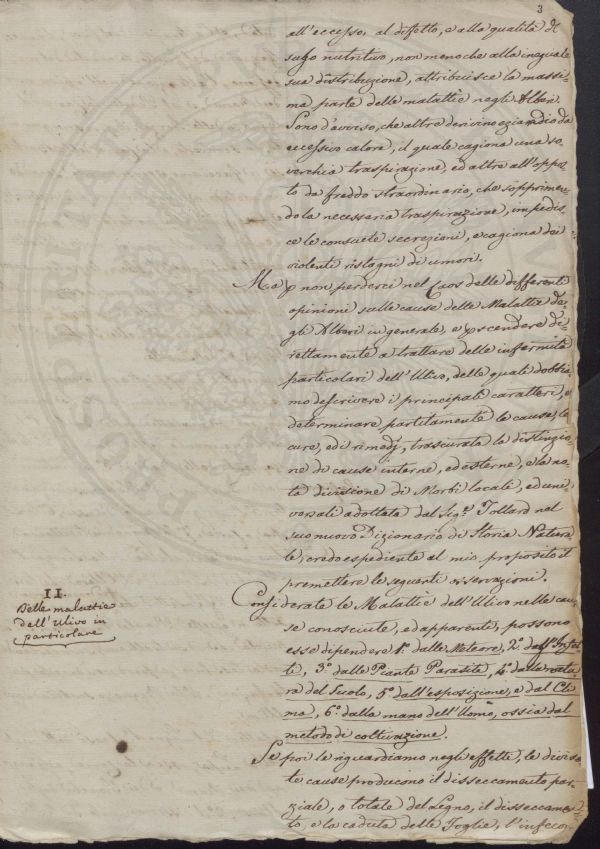 3
all'eccesso, al difetto, e alla qualità del
sugo nutritivo, non meno che alla ineguale
sua distribuzione, attribuisce la massi=
ma parte delle malattie negli Alberi.
Sono d'avviso, che altre derivino eziandio da
eccessivo calore, il quale cagiona una so
verchia traspirazione, ed altre all'oppos
to da freddo straordinario, che sopprimen
do la necessaria traspirazione, impedis
ce le consuete secrezioni, e cagiona dei
violenti ristagni di umori.
Ma p non perdersi nel Caos delle differenti
opinioni sulle cause delle Malattie de=
gli Alberi in generale, e p scendere di=
rettamente a trattare delle infermità
particolari dell'Ulivo, delle quali dobbia
mo descrivere i principali caratteri, e
determinare partitamente le cause, le
cure, ed i rimedj, trascurata la distinzio
ne di cause interne, ed esterne, e la no
ta divisione di Morbi locali, ed uni=
versali adottata dal Sig.r Tollard nel
suo nuovo Dizionario di Storia Natura
le, credo espediente al mio proposito il
premettere le seguenti osservazioni.
II.
Delle malattie
dell'Ulivo in
particolare
Considerate le Malattie dell'Ulivo nelle cau
se conosciute, ed apparenti, possono
esse dipendere 1.° dalle Meteore, 2.° dagl'Inset
ti, 3.° dalle Piante Parasite, 4.° dalla natu
ra del Suolo, 5.° dall'esposizione, e dal Cli
ma, 6.° dalla mano dell'Uomo, ossia dal
metodo di coltivazione.
Se poi le riguardiamo negli effetti, le divisa
te cause producono il disseccamento par
ziale, o totale del Legno, il disseccamen
to, e la caduta delle Foglie, l'infecon=